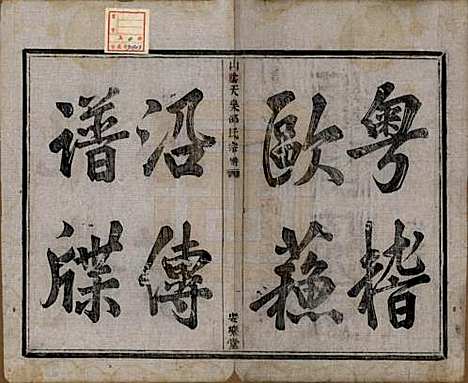 粤稽
歐蘇
山陰天樂邵氏宗譜
安樂堂
沿傳
譜牒